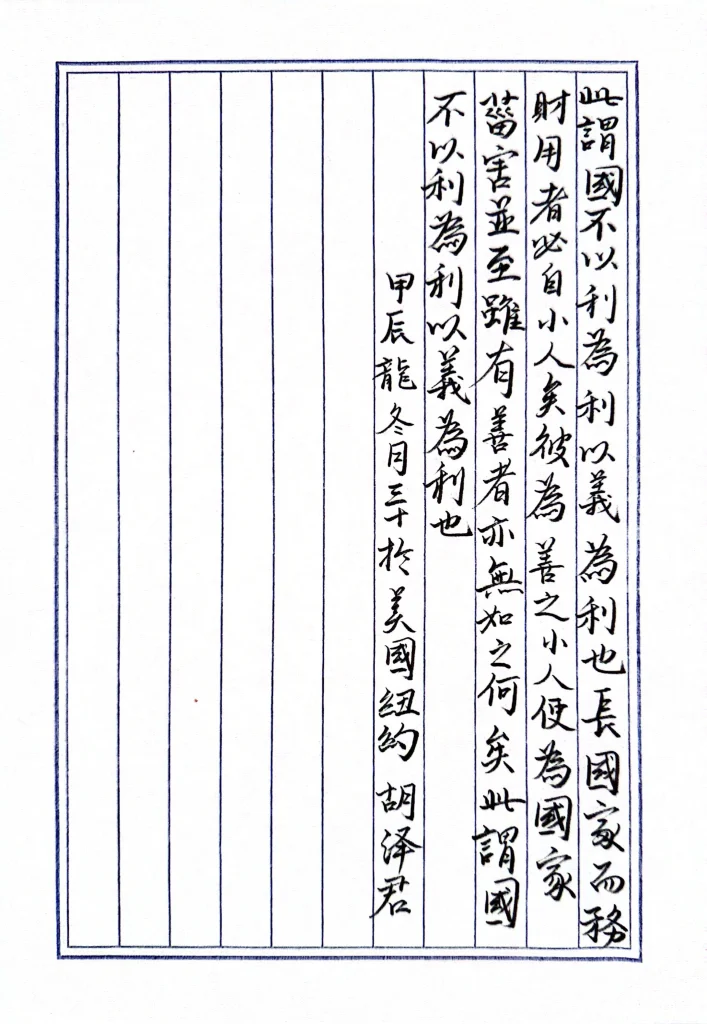 此謂國不以利為利以義為利也長國家而務
財用者必自小人矣彼為善之小人使為國家
菑害並至雖有善者亦無如之何矣此謂國
不以利為利以義為利也
甲辰龍冬月三十於美國紐約 胡泽君